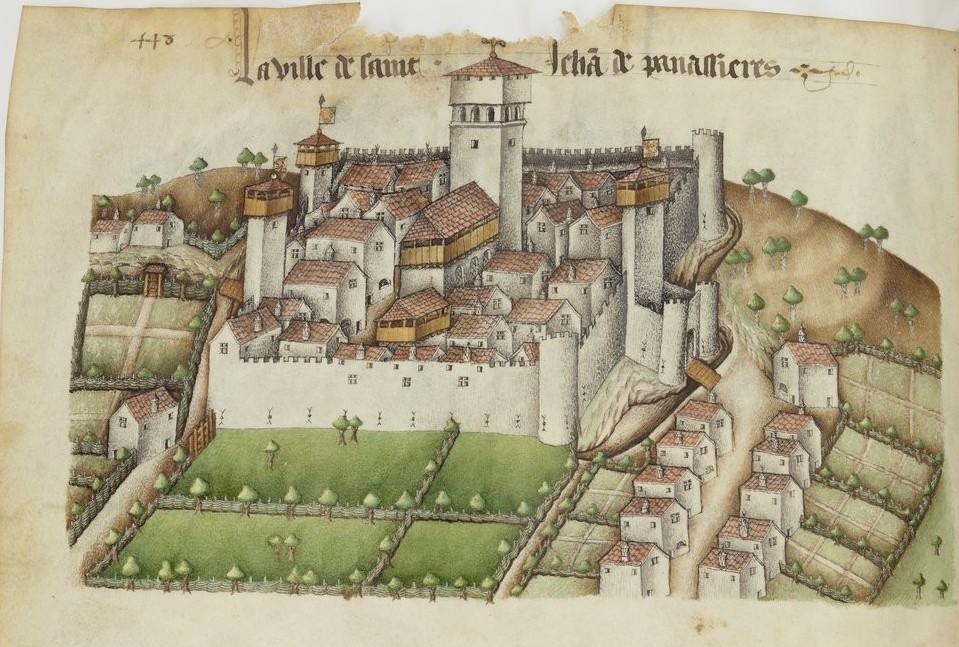 443
La ville de saint Jehā de panassieres